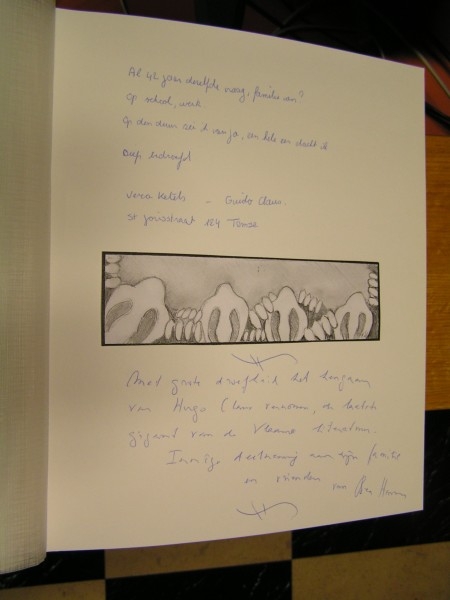 Al 42 jaar dezelfde vraag, familie van?
Op school, werk
Op den duur zei k van ja, en hele en dacht ik
Diep bedroefd
Vera Ketels - Guido Claus.
St Jorisstraat 184 Temse
Met grote droefheid het heengaan
van Hugo Claus vernomen, de laatste
gigant van de Vlaamse literatuur.
Innige deelneming aan zijn familie
en vrienden van